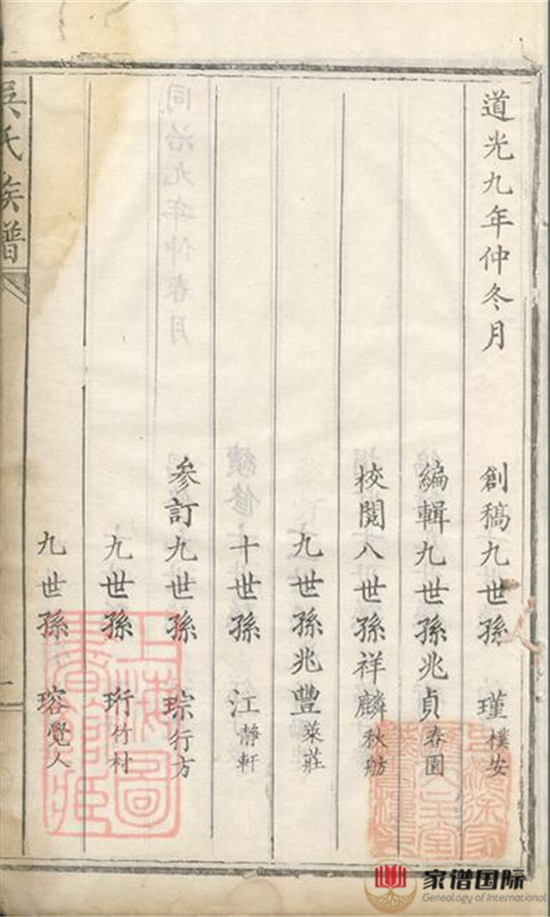 道光九年仲冬月
創稿九世孫 瑾樸安
編輯九世孫兆貞春圃
校閱八世孫祥麟秋舫
九世孫兆豐萊莊
十世孫 江靜軒
參訂九世孫 琮行方
九世孫 珩竹村
九世孫 瑢覺人
吳氏族譜
同治九年仲春月
續修
上海圖書館藏
家谱国际
Genealogy of International